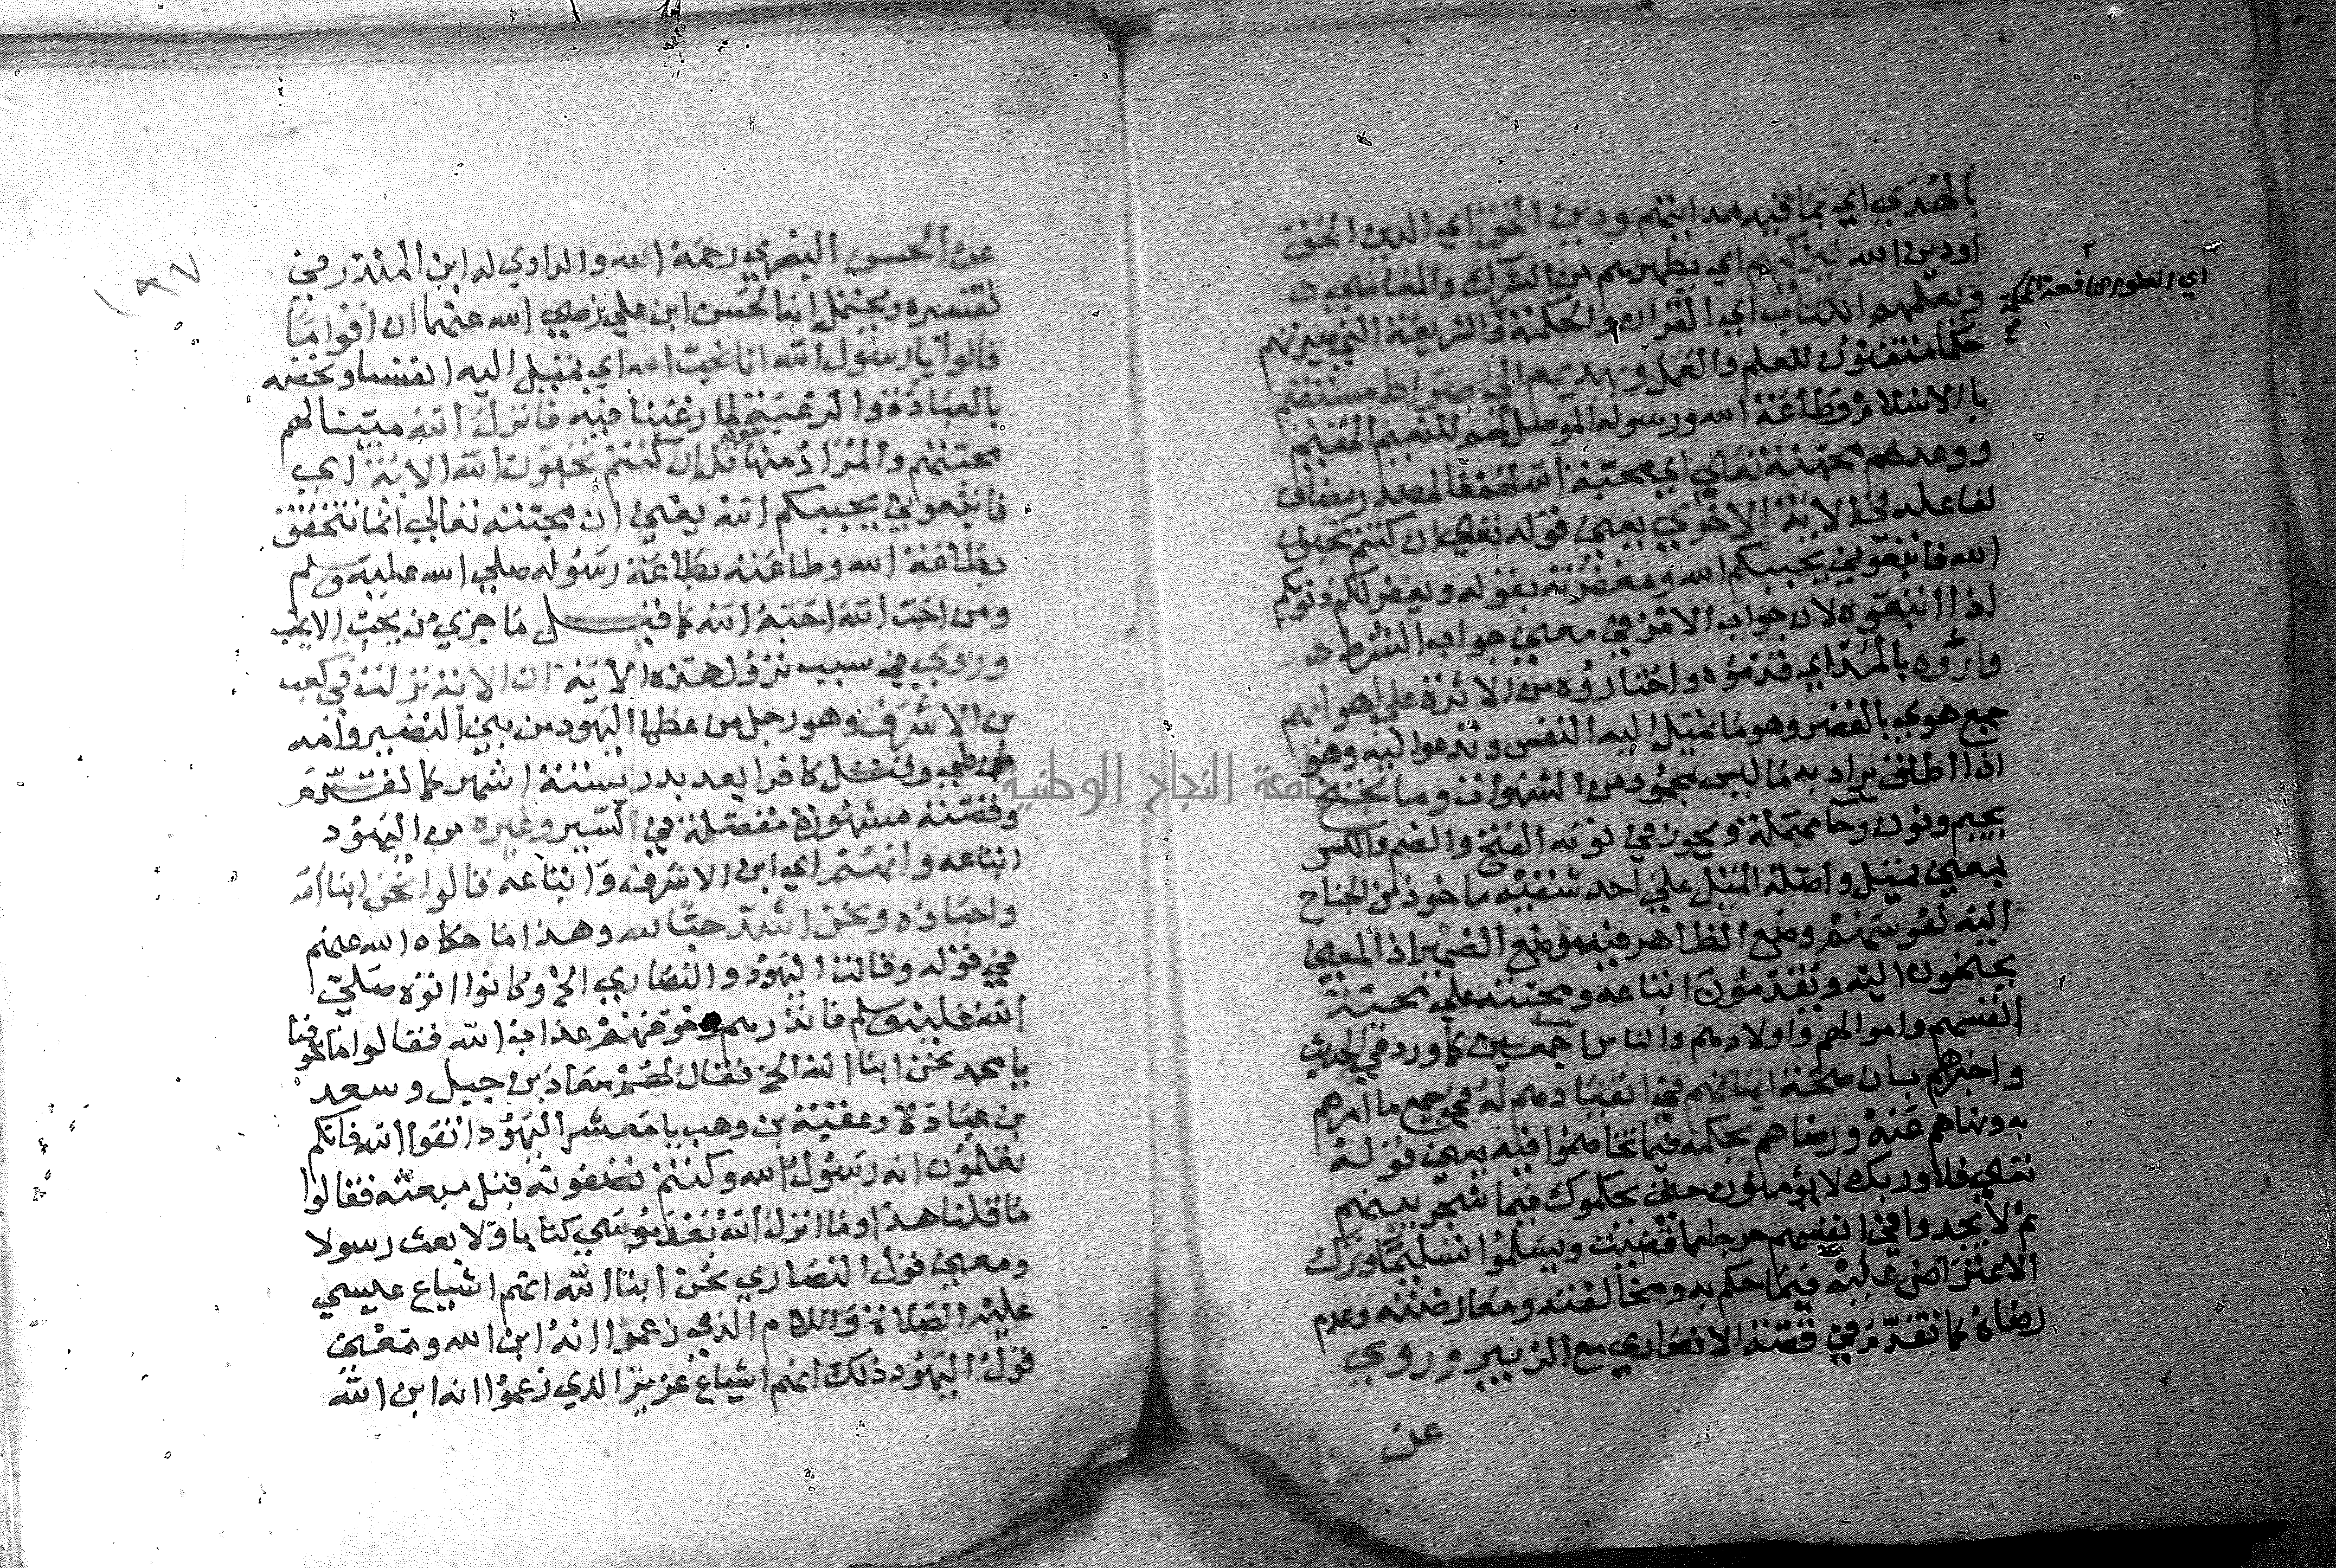 بالهدي اي بما فيه هدايتهم ودين الحق اي الدين الحق
او دين الله ليزكيهم اي يطهرهم من الشرك والمعاصي
ويعلمهم الكتاب اي القران والحكمة والشريعة التي
اي العلوم النافعة
حكما متقنون للعلم والعمل ويهديهم الي صراط مستقيم
بالاسلام وطاعة الله ورسوله الموصل لهم للنعيم المقيم
ووعدهم محبته تعالي اي محبة الله لهم فالمصدر مضاف
لفاعله في الاية الاخري يعني قوله تعالي ان كنتم تحبون
الله فاتبعوني يحببكم الله ومغفرته بقوله ويغفر لكم ذنوبكم
اذا اتبعوه لان جواب الامر في معني جواب الشرط
واثروه بالمد اي قدموه واختاروه من الاثرة علي اهوايهم
جمع هوي بالقصر وهو ما تميل اليه النفس وتدعوا ليه وهو
اذا اطلق يراد به ما ليس بمحمود من الشهوات وما تجنح
بجيم ونون وحا مهملة ويجوز في نونه الفتح والضم والكسر
بمعني تميل واصله الميل علي احد شقيه ماخوذ من الجناح
اليه نفوسهم وضع الظاهر فيه موضع الضمير اذ المعني
يجنحون اليه ويقدمون اتباعه ومحبته علي محبة
انفسهم واموالهم واولادهم والناس اجمعين كما ورد في الحديث
واخبرهم بان صحة ايمانهم في انقيادهم له في جميع ما امرهم
به ونهاهم عنه ورضاهم بحكمه فيما تخاصموا فيه يعني قوله
تعالي فلا وربك لا يؤمنون حتي يحكموك فيما شجر بينهم
ثم لا يجدوا في انفسهم حرجا مما قضيت ويسلموا تسليما وترك
الاعتراض عليه فيما حكم به ومخالفته ومعارضته وعدم
رضاه كما تقدم في قصة الانصاري مع الزبير وروي
عن
١٩٧
عن الحسن البصري رحمه الله والراوي له ابن المنذر في
تفسيره ويحتمل انه الحسن ابن علي رضي الله عنهما ان اقواما
قالوا يا رسول الله انا نحب الله اي تميل اليه انفسنا ونخصه
بالعبادة والرغبة لما رغبنا فيه فانزل الله مبينا لهم
محبتهم والمراد منها قوله قل ان كنتم تحبون الله الاية اي
فاتبعوني يحببكم الله يعني ان محبته تعالي انما تتحقق
بطاعة الله وطاعته بطاعة رسوله صلي الله عليه وسلم
ومن احب الله احبه الله كما قيل ما جزي من يحب الا يحب
وروي في سبب نزول هذه الاية ان الاية نزلت في كعب
بن الاشرف وهو رجل من عظما اليهود من بني النضير وامه
من طي وقتل كافرا بعد بدر بستة اشهر كما تقدم
وقصته مشهورة مفصلة في السير وغيره من اليهود
اتباعه وانهم اي ابن الاشرف واتباعه قالوا نحن ابنا الله
واحباؤه ونحن اشد حبا لله وهذا ما حكاه الله عنهم
في قوله وقالت اليهود والنصاري الخ وكانوا اتوه صلي
الله عليه وسلم فانذرهم وخوفهم عذاب الله فقالوا ما تخوفنا
يا محمد نحن ابنا الله الخ فقال لهم معاذ بن جبل وسعد
بن عبادة وعقبة بن وهب يا معشر اليهود اتقوا الله فانكم
تعلمون انه رسول الله وكنتم تصفونه قبل مبعثه فقالوا
ما قلنا هذا وما انزل الله بعد موسي كتابا ولا بعث رسولا
ومعني قول النصاري نحن ابنا الله انهم اشياع عيسي
عليه الصلاة والسلام الذي زعموا انه ابن الله ومعني
قول اليهود ذلك انهم اشياع عزيز الذي زعموا انه ابن الله
جامعة النجاح الوطنية